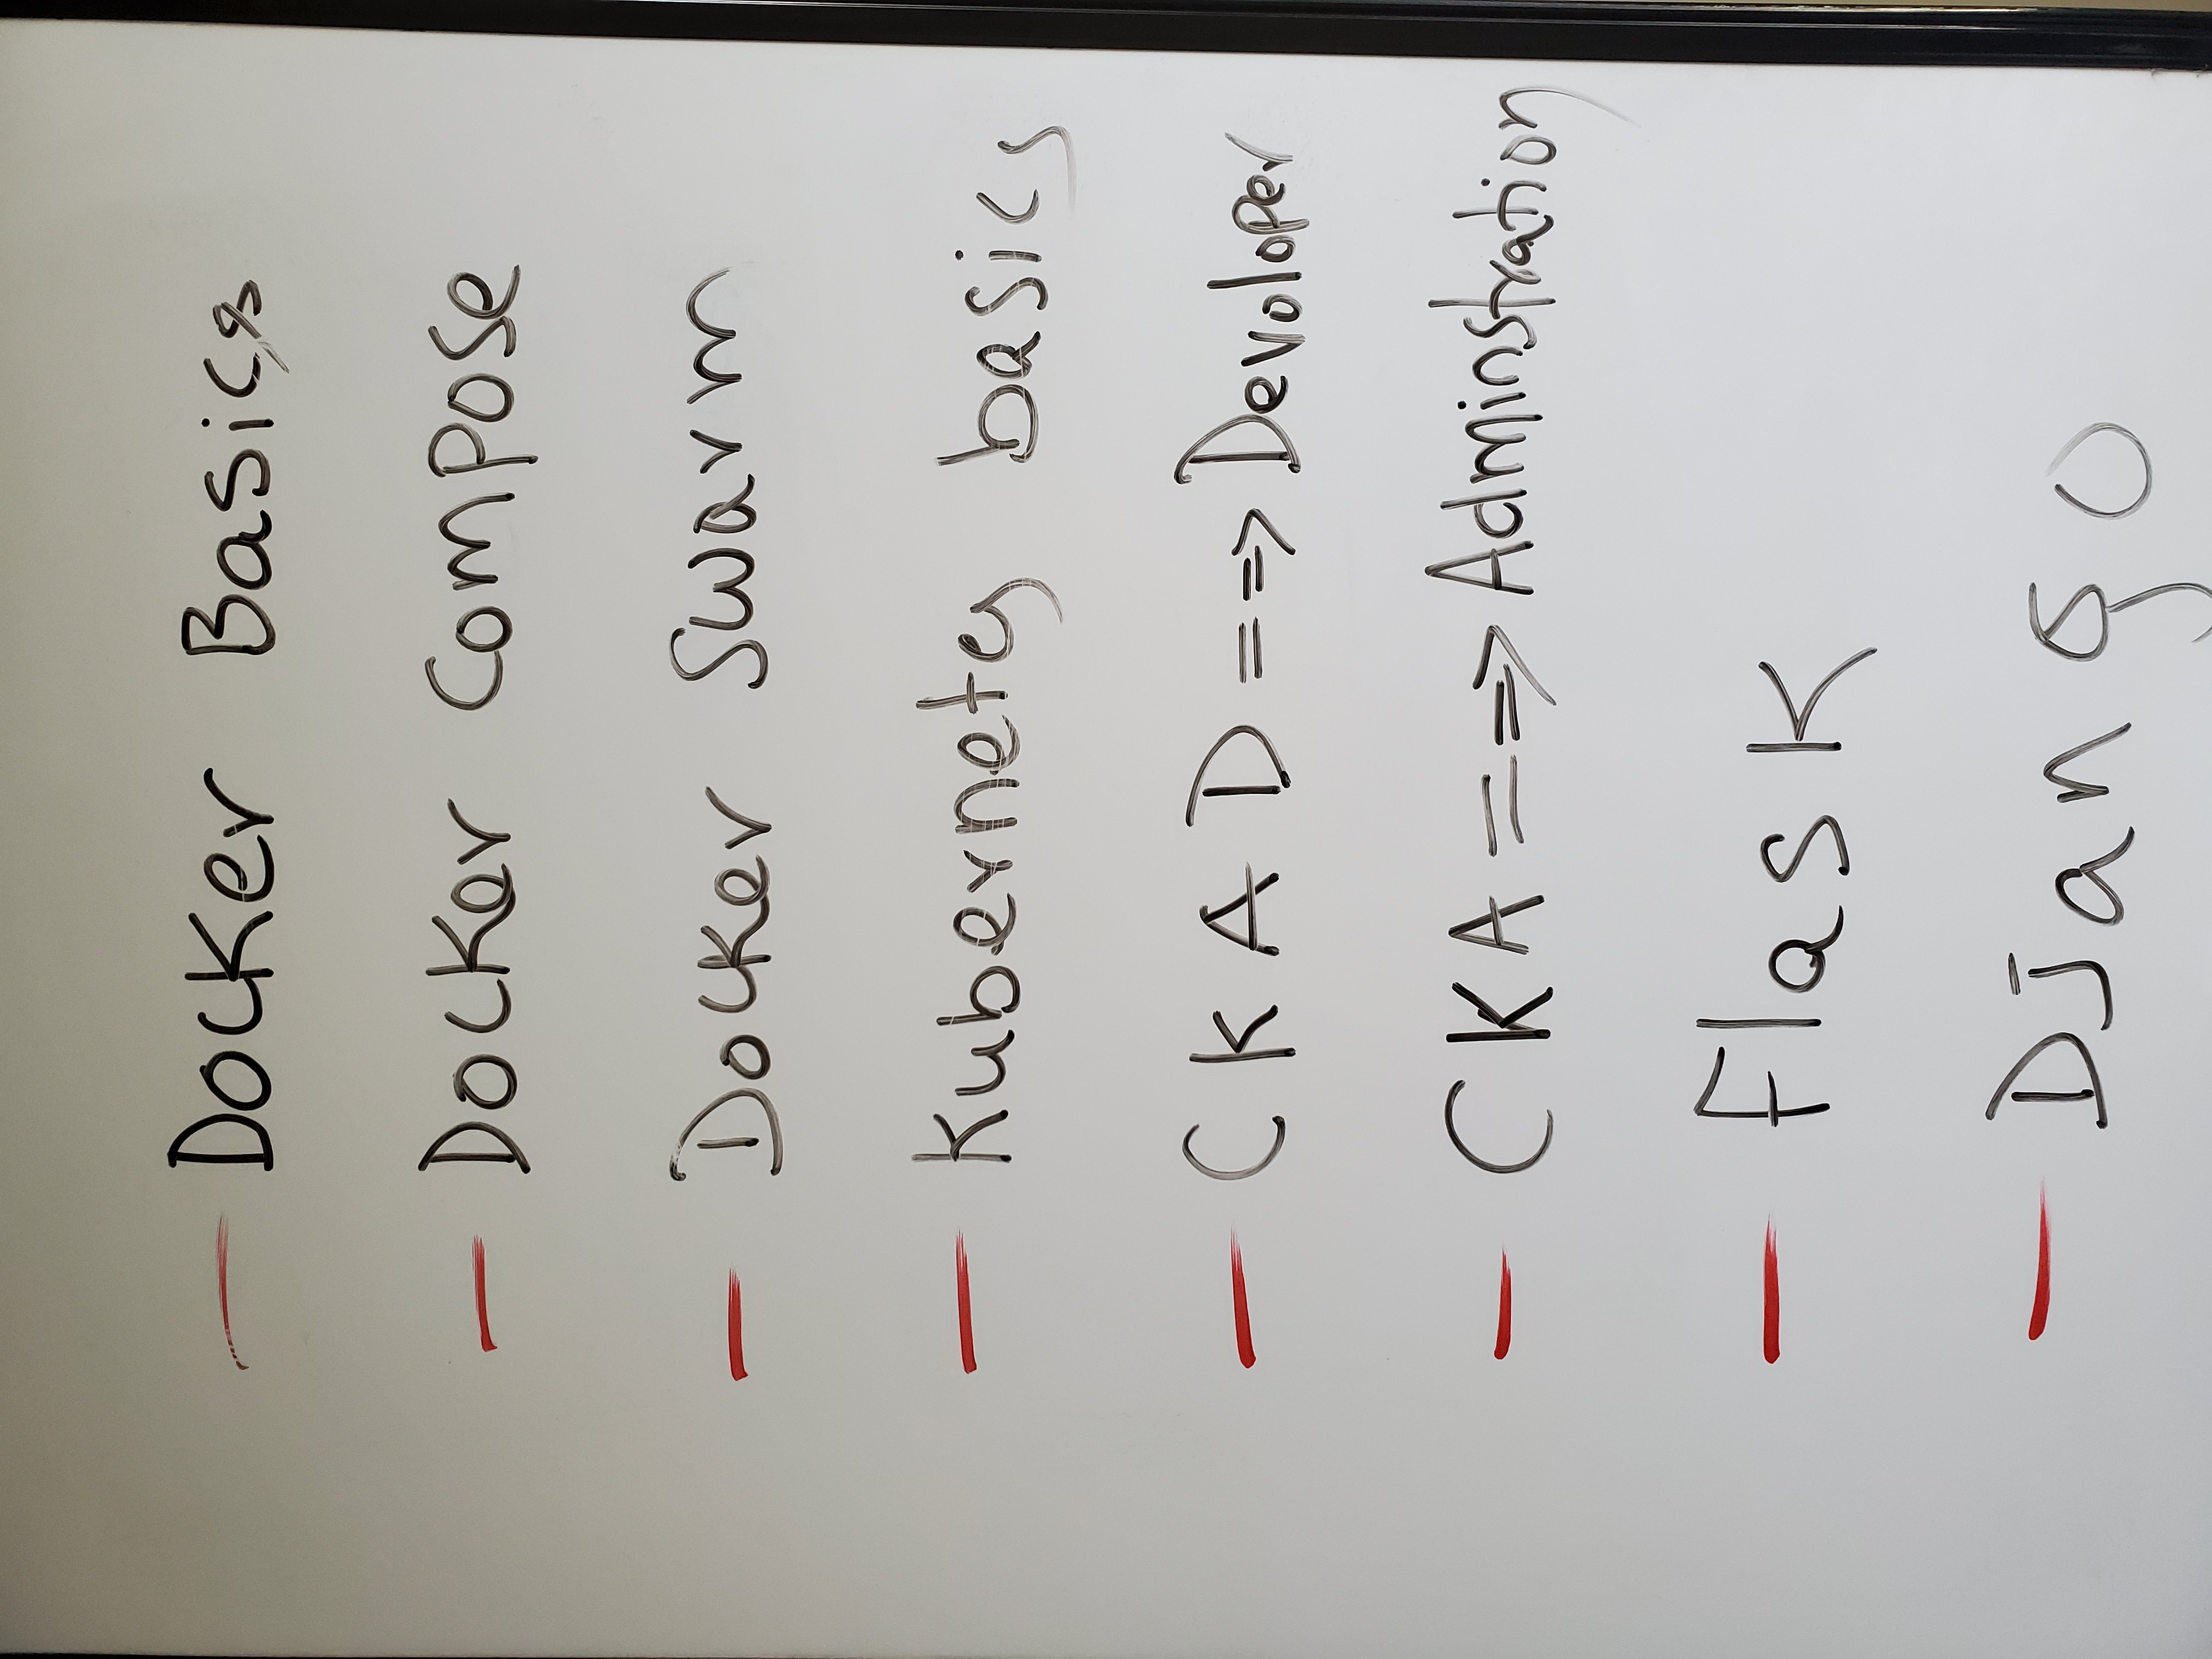 - Docker Basics
- Docker Compose
- Docker Swarm
- Kubernetes basics
- CKAD ==> Devoloper
- CKA ==> Adminstration
- Flask
- Django